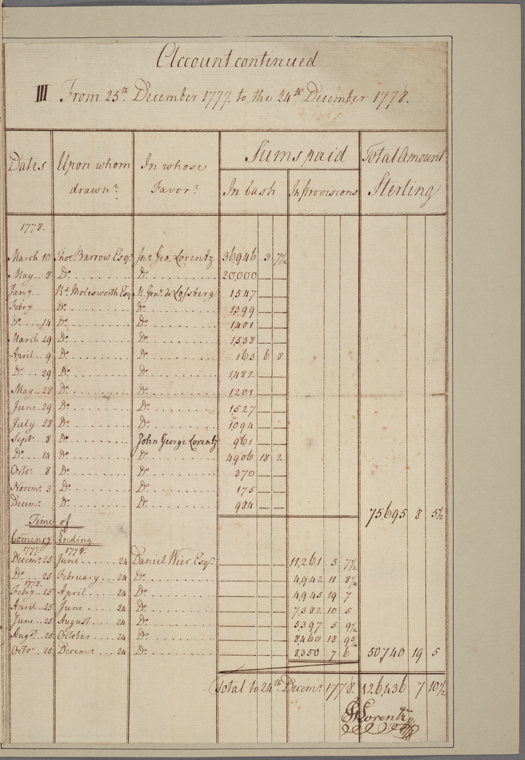 Account continued
III From 25th December 1777. to the 24th December 1778.
Dates Upon whom drawn? In whose Favor? Sums paid Total Amount Sterling
In Cash In provisions
1778.
March 10 Thos Barrow Esqr Jno Geo. Lorentz 36946 3 7½
May .. 8 Do Do 20,000
Jany Rd Molesworth Esq M. Genl de Lossberg 1547
Febry Do Do 1399
Do .. 14 Do Do 1401
March 29 Do Do 1538
April .. 9 Do Do 163 6 8
Do .. 29 Do Do 1482
May .. 28 Do Do 1201
June .. 29 Do Do 1527
July .. 28 Do Do 1094
Sept. 8 Do John George Lorentz 961
Do .. 14 Do Do 4906 18 2
Octo. 8 Do Do 370
Novem. 3 Do Do 175
Decem. Do Do 984
75695 8 5½
Time of
Comencg Ending
1777. 1778.
Decem. 25 June .. 24 Daniel Wier Esqr. 11,261 5 7½
Do .. 25 February .. 24 Do 4942 11 8¼
1778.
Febry .. 25 April .. 24 Do 4945 19 7
April .. 25 June .. 24 Do 7382 10 5
June .. 25 August .. 24 Do 5397 5 9½
Augt. 25 October .. 24 Do 8460 18 9¾
Octo. 25 Decemr .. 24 Do 8350 7 6 50740 19 5
Total to 24th Decemr. 1778. 126,436 7 10½
JGLorentz